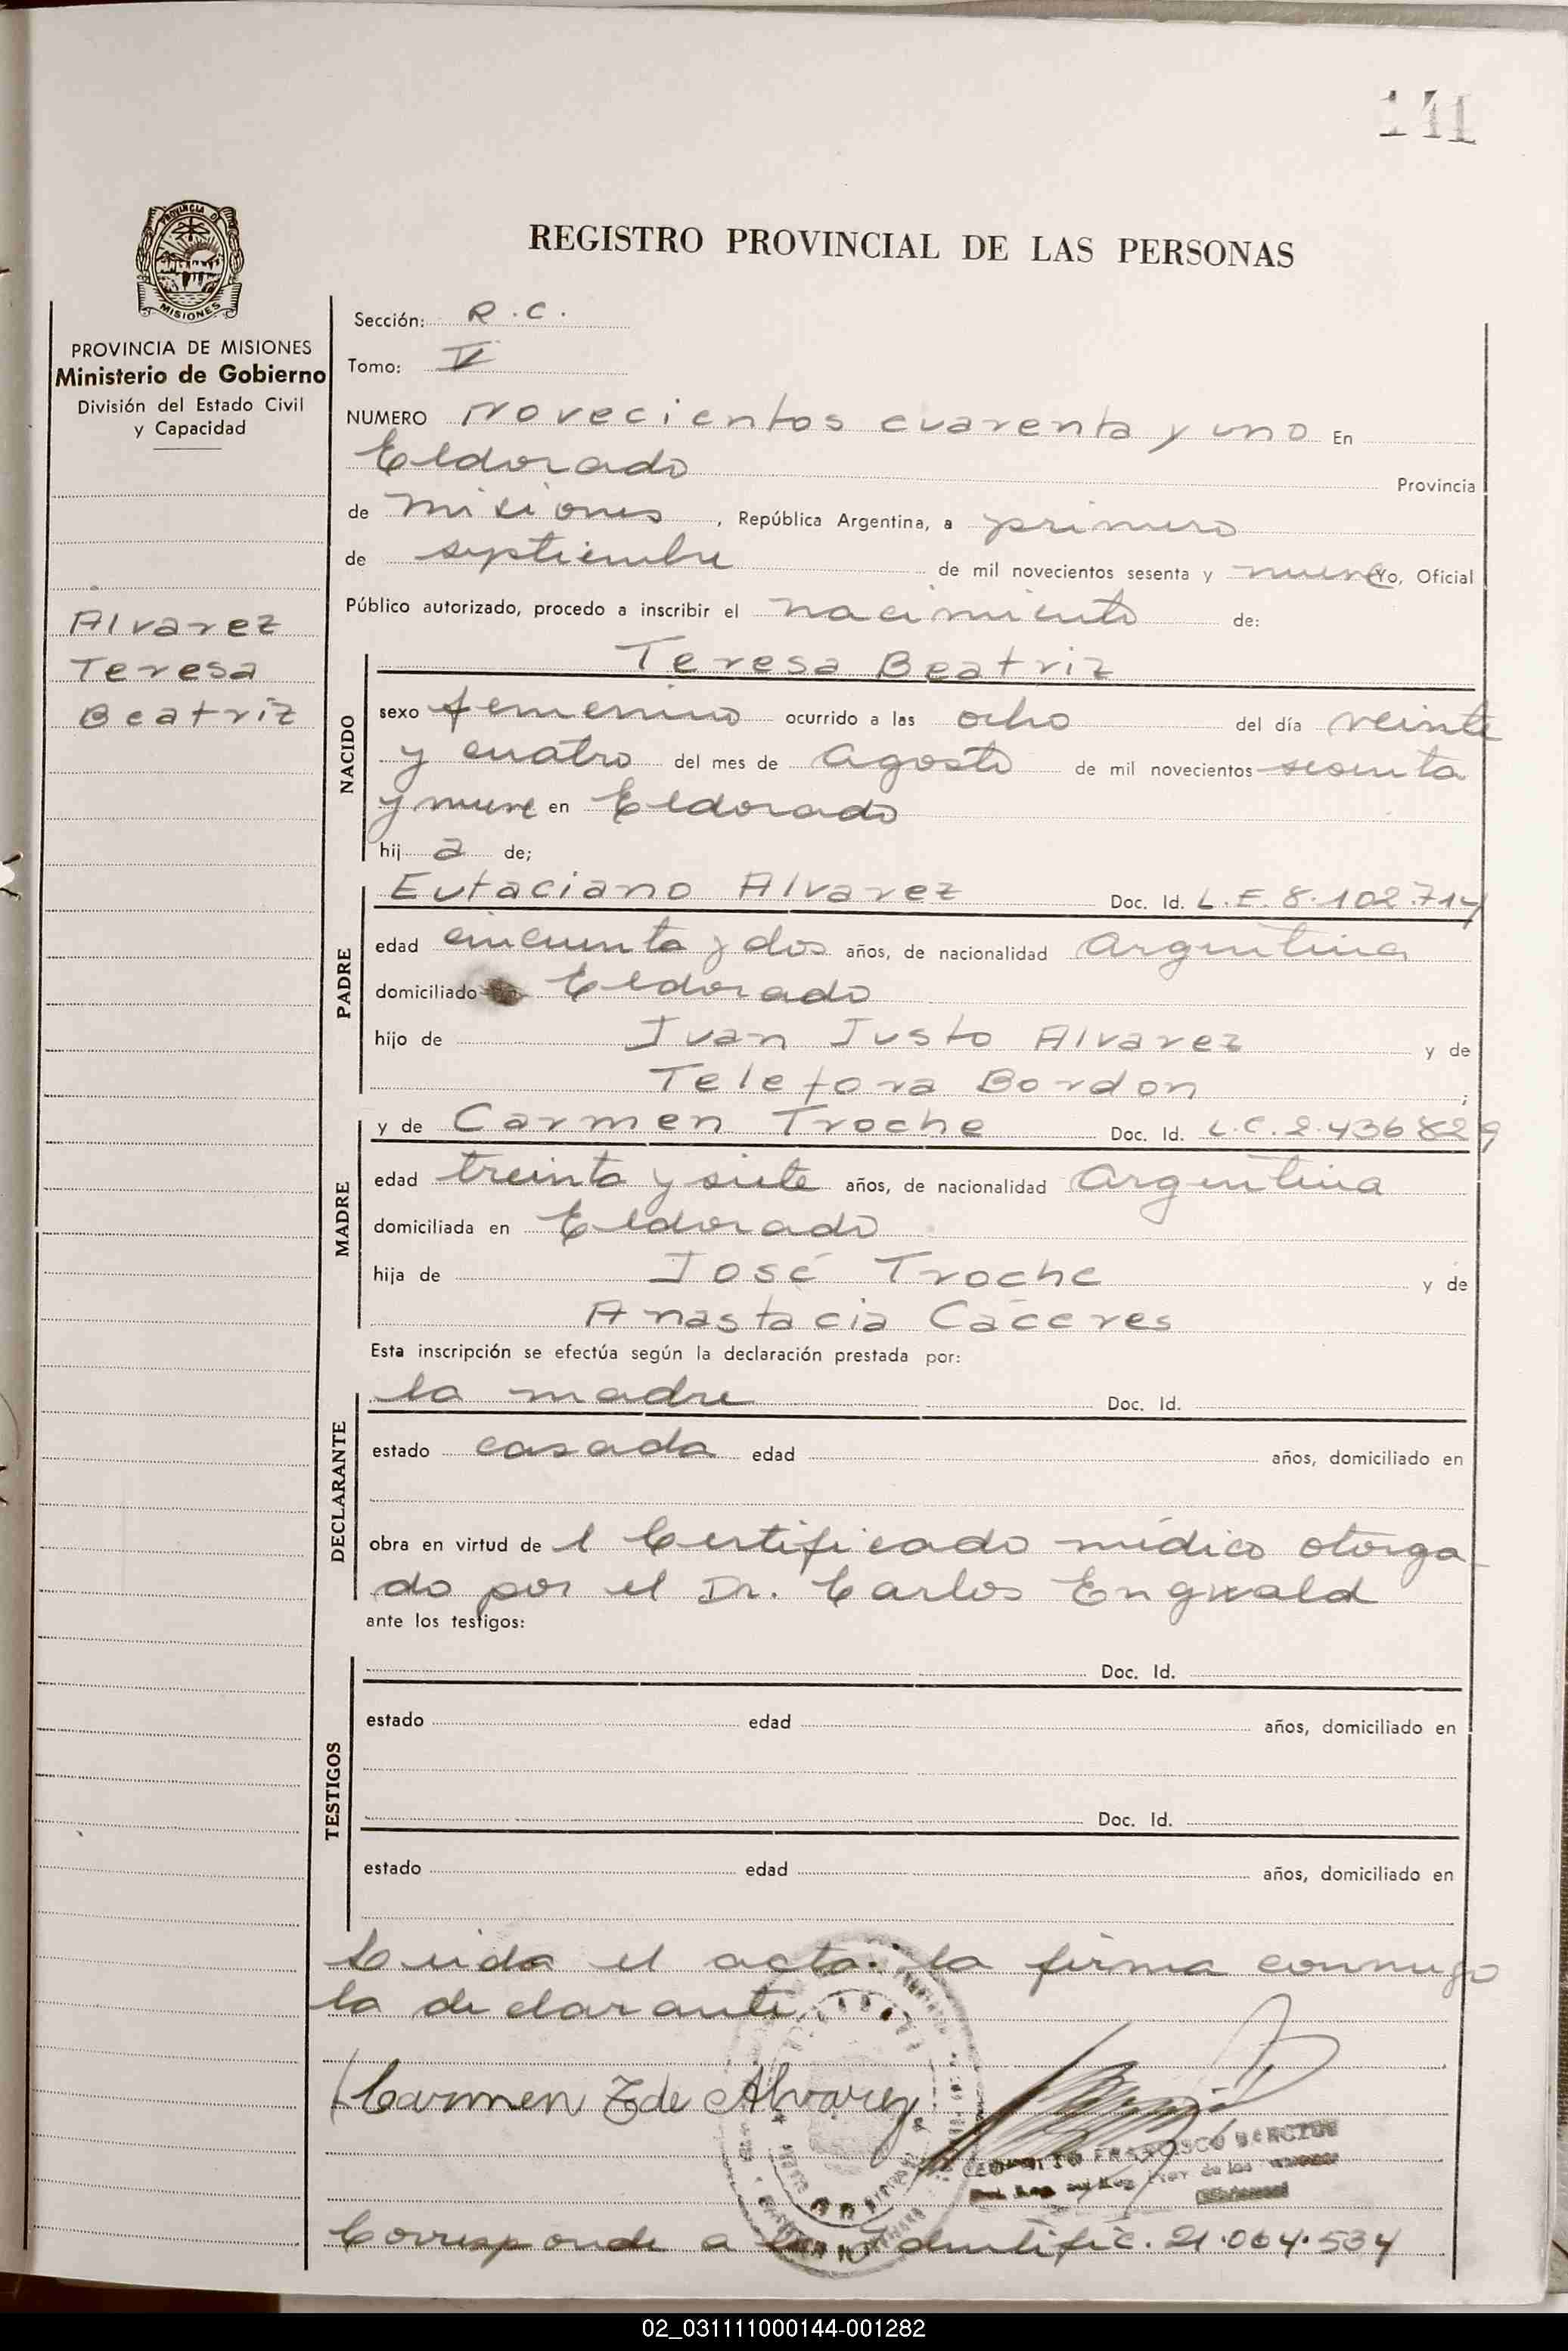 141
PROVINCIA DE
MISIONES
PROVINCIA DE MISIONES
Ministerio de Gobierno
División del Estado Civil
y Capacidad
Alvarez
Teresa
Beatriz
REGISTRO PROVINCIAL DE LAS PERSONAS
Sección: R.C.
Tomo: V
NUMERO novecientos cuarenta y uno En
Eldorado
Provincia
de Misiones, República Argentina, a primero
de septiembre de mil novecientos sesenta y nueve Yo, Oficial
Público autorizado, procedo a inscribir el nacimiento de:
Teresa Beatriz
NACIDO
sexo femenino ocurrido a las ocho del día veinte
y cuatro del mes de Agosto de mil novecientos sesenta
y nueve en Eldorado
hij a de;
PADRE
Eutaciano Alvarez Doc. Id. L.E. 8.102.714
edad cincuenta y dos años, de nacionalidad Argentina
domiciliado Eldorado
hijo de Juan Justo Alvarez y de
Telefora Bordon ;
MADRE
y de Carmen Troche Doc. Id. L.C. 2.436829
edad treinta y siete años, de nacionalidad Argentina
domiciliada en Eldorado
hija de José Troche y de
Anastacia Cáceres
Esta inscripción se efectúa según la declaración prestada por:
DECLARANTE
la madre Doc. Id.
estado casada edad años, domiciliado en
obra en virtud de l Certificado médico otorga-
do por el Dr. Carlos Engwald
ante los testigos:
TESTIGOS
Doc. Id.
estado edad años, domiciliado en
Doc. Id.
estado edad años, domiciliado en
Leida el acta. la firma conmigo
la declarante.
Carmen T de Alvarez
FRANCISCO
Corresponde a Identific. 21.064.534
02_031111000144-001282